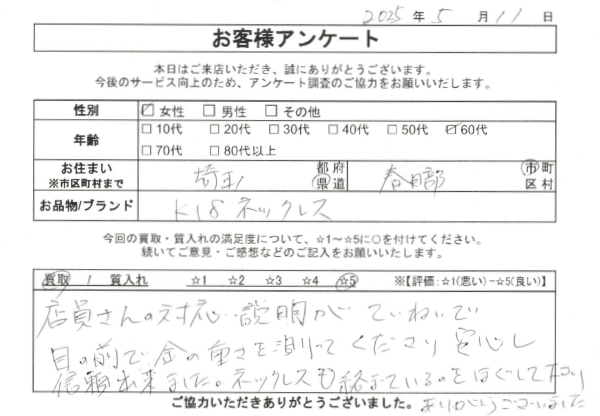 2025 年 5 月 11 日
お客様アンケート
本日はご来店いただき、誠にありがとうございます。
今後のサービス向上のため、アンケート調査のご協力をお願いいたします。
性別 ☑ 女性 □ 男性 □ その他
年齢 □ 10代 □ 20代 □ 30代 □ 40代 □ 50代 ☑ 60代
□ 70代 □ 80代以上
お住まい ※市区町村まで 埼玉 都 府 県 道 春日部 市 町 区 村
お品物/ブランド K18 ネックレス
今回の買取・質入れの満足度について、☆1～☆5に○を付けてください。
続いてご意見・ご感想などのご記入をお願いいたします。
買取 / 質入れ ☆1 ☆2 ☆3 ☆4 ☆5 ※【評価:☆1(悪い)－☆5(良い)】
店員さんの対応・説明がていねいで
目の前で金の重さを測ってくださり安心し
信頼出来ました。ネックレスも絡まっているのをほぐして下さり
ありがとうございました
ご協力いただきありがとうございました。